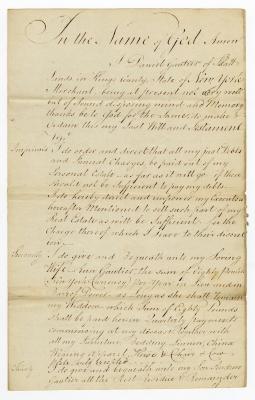 In the Name of God Amen
I Daniel Gautier of Flatt
Lands in Kings County State of New York
Merchant, being at present not very well
but of Sound disposing mind and Memory
thanks be to God for the Same, do make &
ordain this my Last Will and Testament
Imprimis I do order and direct that all my just Debts
and Funeral Charges be paid out of my
Personal Estate as far as it will go if there
should not be Sufficient to pay my debts
I do hereby direct and impower my Executors
hereafter Mentioned to sell such part of my
Real Estate as will be Sufficient for the
Charge thereof which I leave to their discreti
on
Secondly I do give and Bequeath unto my Loving
Wife Ann Gautier the sum of Eighty Pounds
New York Currency Per Year in Lieu and in
Barr of Dower as long as she shall remain
my Widdow which Sum of Eighty Pounds
Shall be paid her in Quarterly payments
commencing at my decease, together with
all my Furniture Bedding Linnen China
Wearing Apparel, Horse & Chair & Cow
Thirdly I do give and bequeath unto my Son
Gautier all the Rest Residue & Remainder